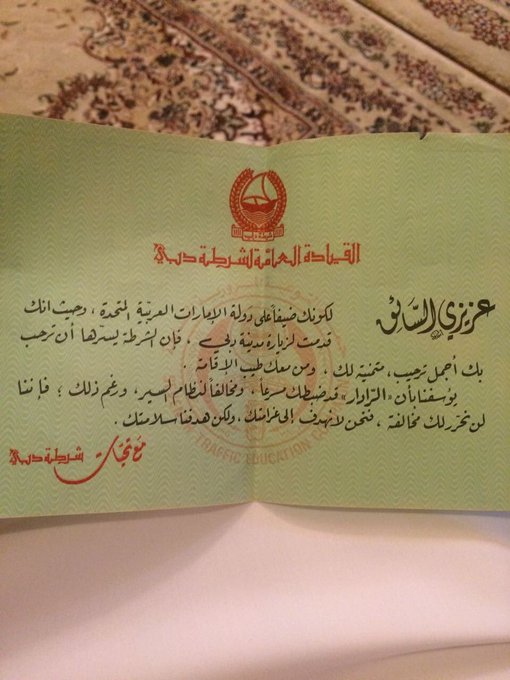 القيادة العامة لشرطة دبي
عزيزي السائق
لكونك ضيفاً على دولة الامارات العربية المتحدة ، وحيث انك
قدمت لزيارة مدينة دبي ، فإن الشرطة يسرّها أن ترحب
بك أجمل ترحيب ، متمنية لك ، ومن معك طيب الاقامة .
يؤسفنا بأن «الرادار» قد ضبطك مسرعاً ، ومخالفاً لنظام السير ، ورغم ذلك ؛ فإننا
لن نحرّر لك مخالفة ، فنحن لا نهدف إلى غرامتك ، ولكن هدفنا سلامتك .
مع تحيات شرطة دبي
TRAFFIC EDUCATION